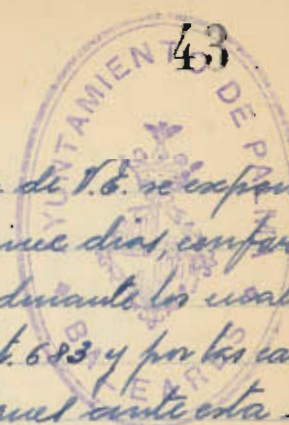 43
AYUNTAMIENTO DE PALMA
BALEARES
de V.E. se expon
dias, confor
durante los cuales
t. 683 y por las ca
ante esta